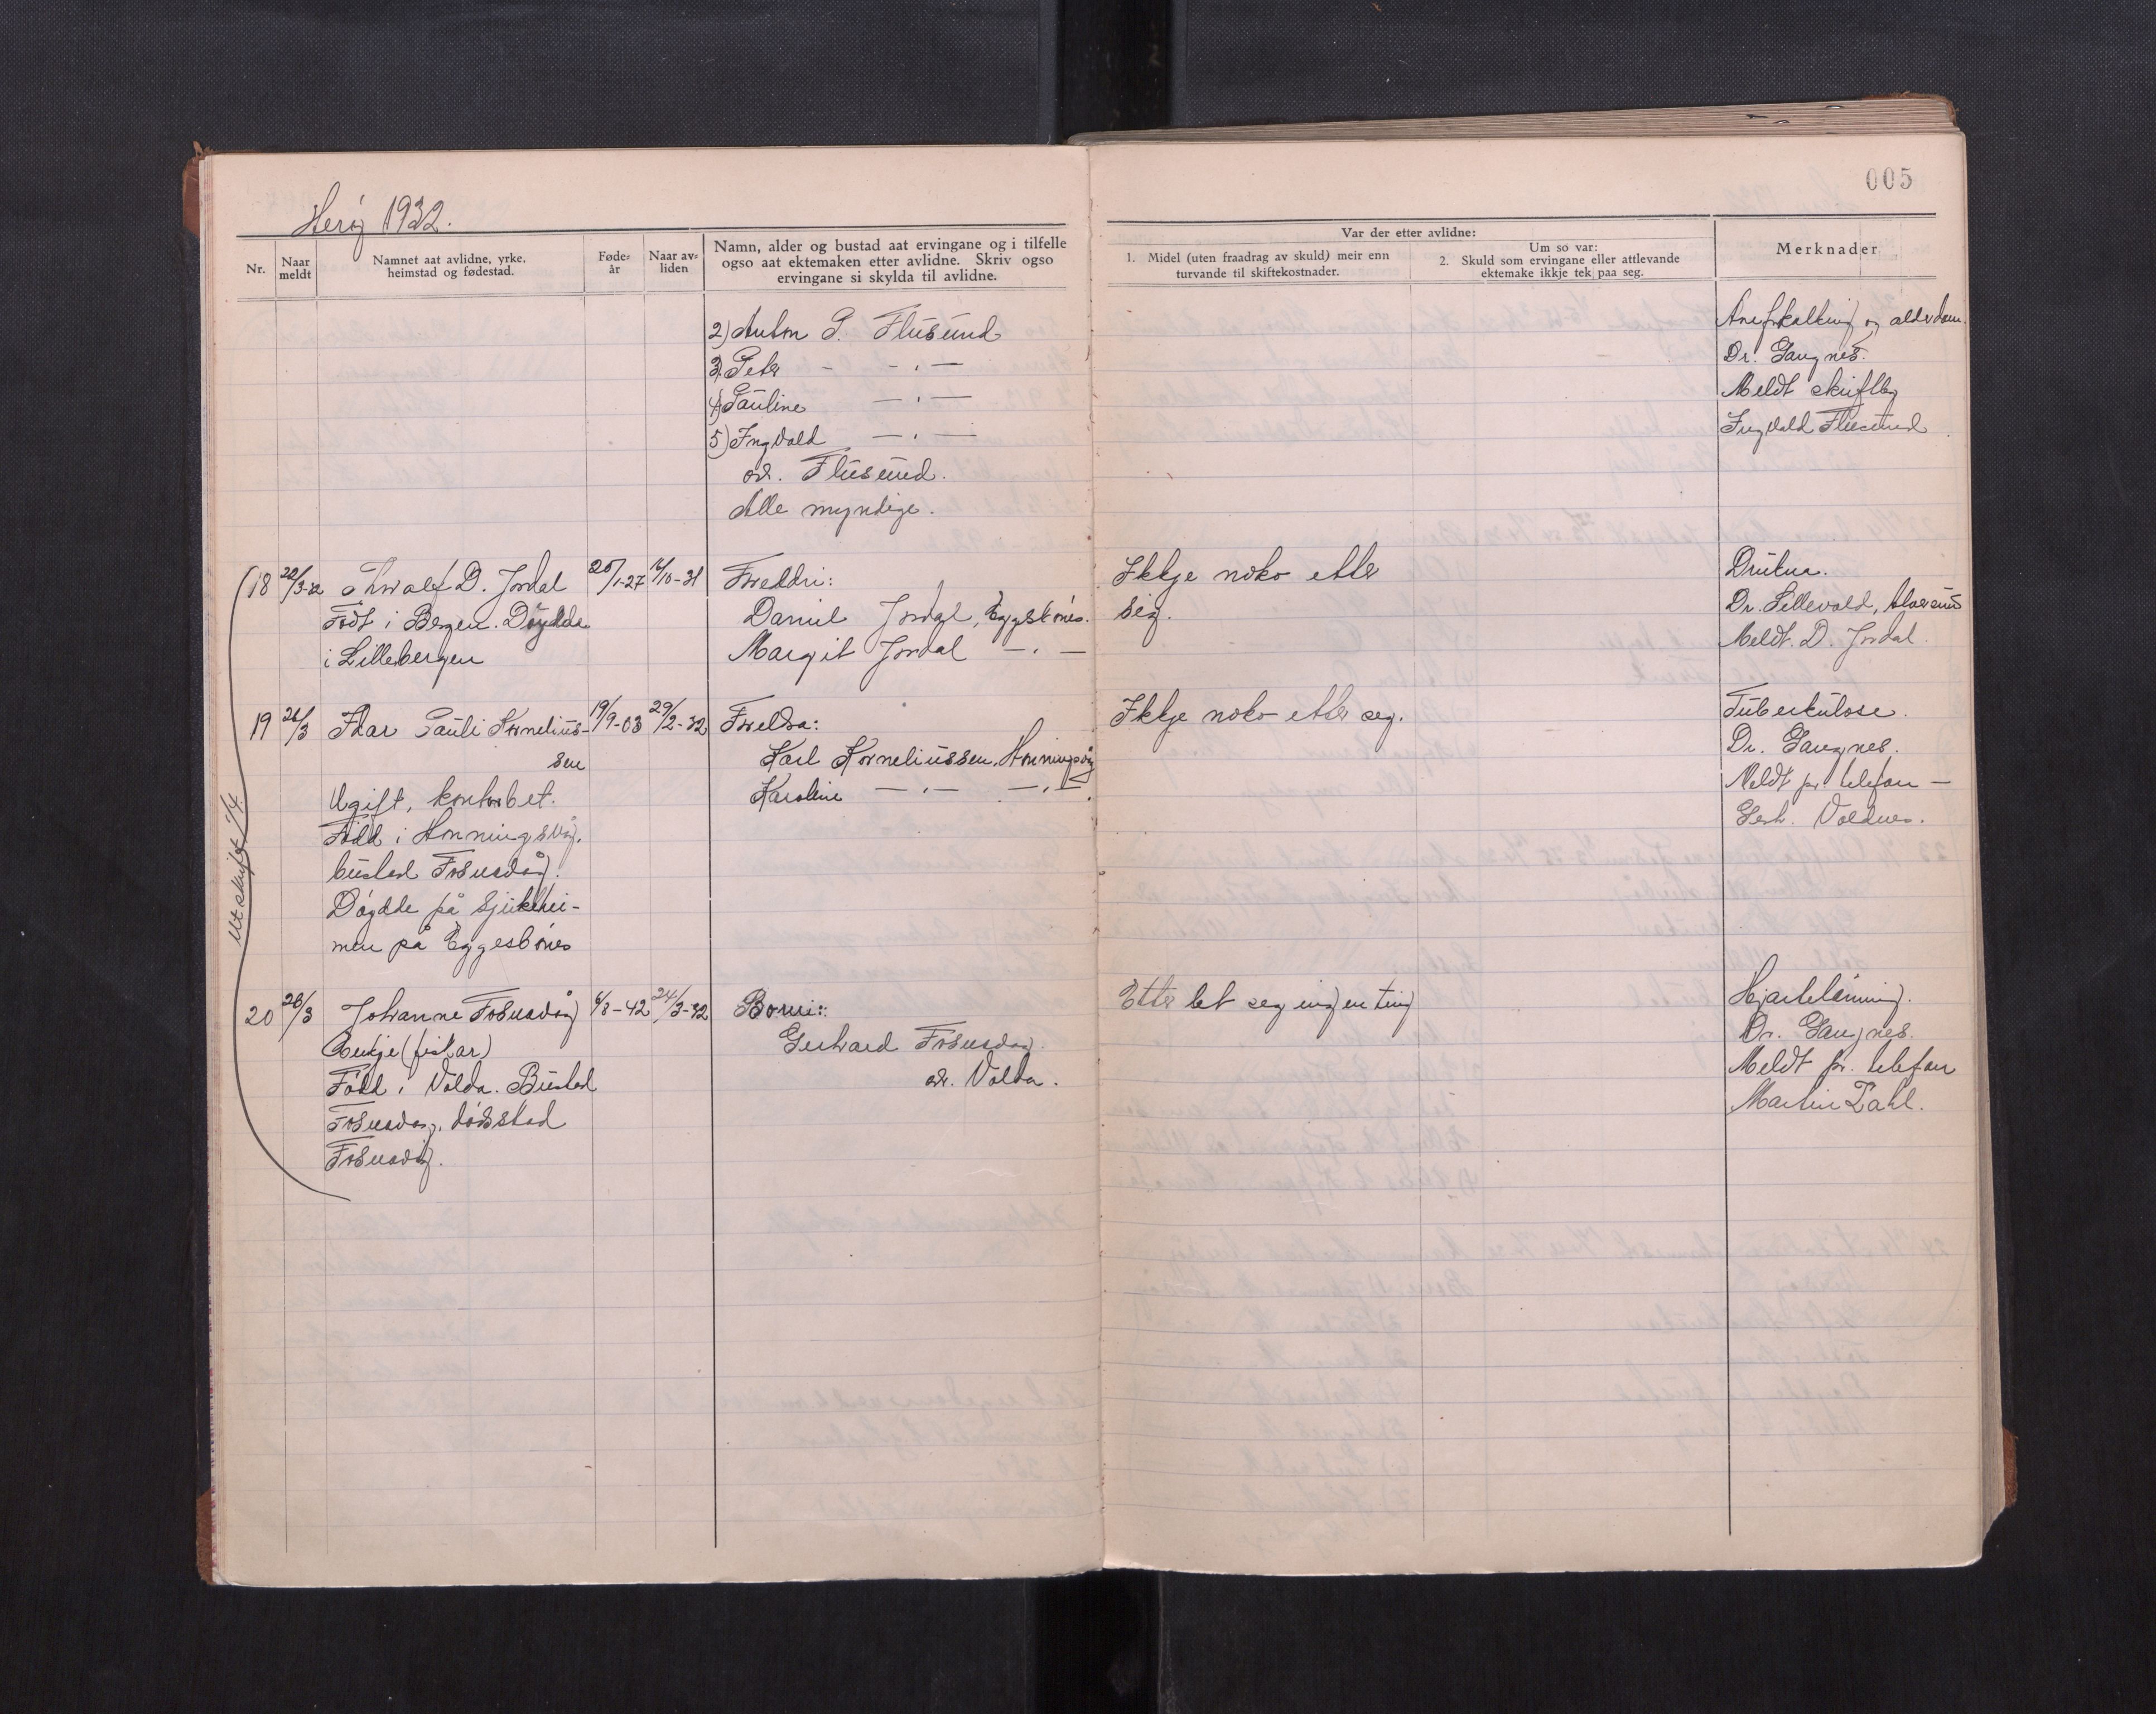 005
Herøy 1932.
Nr.
Naar meldt
Namnet aat avlidne, yrke, heimstad og fødestad.
Føde-år
Naar av-liden
Namn, alder og bustad aat ervingane og i tilfelle
ogso aat ektemaken etter avlidne. Skriv ogso
ervingane si skylda til avlidne.
Var der etter avlidne:
1. Midel (uten fraadrag av skuld) meir enn
turvande til skiftekostnader.
Um so var:
2. Skuld som ervingane eller attlevande
ektemake ikkje tek paa seg.
Merknader
2) Anton P. Flusund
3) Peter - -.-
4) Pauline -.-
5) Ingvald -.-
adr. Flusund.
Alle myndige.
og alderdom.
Dr. Gangnes.
Meldt
Ingvald Flusund
18 22/3-32 Thoralf D. Jordal 20/1-27 /10-31 Foreldri: Ikkje noko etter
Født i Bergen. Døydde Daniel Jordal, Eggesbønes. seg.
i Lillebergen Margit Jordal -.-
Dr. Lillevold,
Meldt. D. Jordal.
19 26/3 Pauli Kornelius- 19/9-03 29/2-32 Foreldra: Ikkje noko etter seg. Tuberkulose.
sen Karl Korneliussen, Honningsvåg Dr. Gangnes.
Ugift, kontorbet. Karoline -.- -.- Meldt pr. telefon -
Født i Honningsvåg. Gerh. Voldnes.
bustad Fosnavåg.
Døydde på Sjukehei-
men på Eggesbønes
utskrift /4.
20 26/3 Johanne Fosnavåg 6/8-42 24/3-32 Born: Etter let seg ingen ting Hjartelamning.
Enkje (fiskar) Gerhard Fosnavåg. Dr. Gangnes.
Født i Volda. Bustad adr. Volda. Meldt pr. telefon
Fosnavåg, dødsstad Martin Dahl.
Fosnavåg.